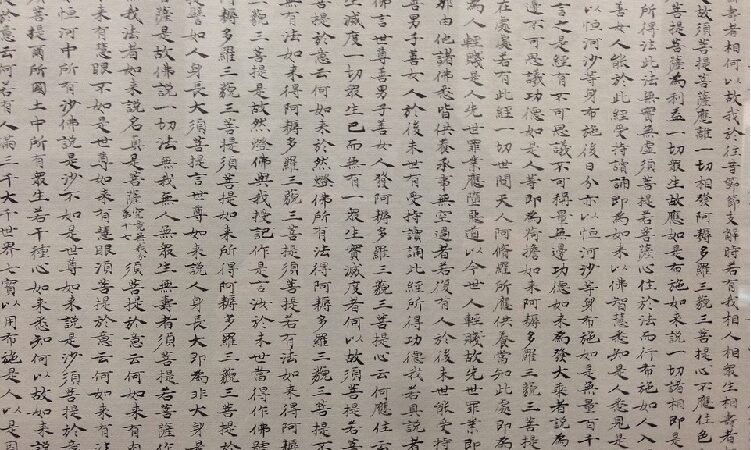 壽者相何以故我於往昔節節支解時若有我相人相衆生相壽者相
故須菩提菩薩應離一切相發阿耨多羅三藐三菩提心不應住色
菩提菩薩為利益一切衆生故應如是布施如來說一切諸相即是
所得法此法無實無虛須菩提若菩薩心住於法而行布施如人入
善女人能於此經受持讀誦即為如來以佛智慧悉知是人悉見是
以恒河沙等身布施後日分亦以恒河沙等身布施如是無量百千
言之是經有不可思議不可稱量無邊功德如來為發大乘者說為
邊不可思議功德如是人等即為荷擔如來阿耨多羅三藐三菩提
在處處若有此經一切世間天人阿修羅所應供養當知此處即為
為人輕賤是人先世罪業應墮惡道以今世人輕賤故先世罪業即
那由他諸佛悉皆供養承事無空過者若復有人於後末世能受持
善男子善女人於後末世有受持讀誦此經所得功德我若具說者
佛言世尊善男子善女人發阿耨多羅三藐三菩提心云何應住云
生滅度一切衆生已而無有一衆生實滅度者何以故須菩提若菩
菩提於意云何如來於然燈佛所有法得阿耨多羅三藐三菩提不
無有法如來得阿耨多羅三藐三菩提須菩提若有法如來得阿耨
三藐三菩提是故然燈佛與我授記作是言汝於來世當得作佛號
耨多羅三藐三菩提須菩提如來所得阿耨多羅三藐三菩提於
提譬如人身長大須菩提言世尊如來說人身長大即為非大身是
薩是故佛說一切法無我無人無衆生無壽者須菩提若菩薩作
我法者如來說名真是菩薩須菩提於意云何如來有肉
來有慧眼不如是世尊如來有慧眼須菩提於意云何如來有
恒河中所有沙佛說是沙不如是世尊如來說是沙須菩提於意
菩提爾所國土中所有衆生若干種心如來悉知何以故如來說
於意云何若有人滿三千大千世界七寶以用布施是人以是因